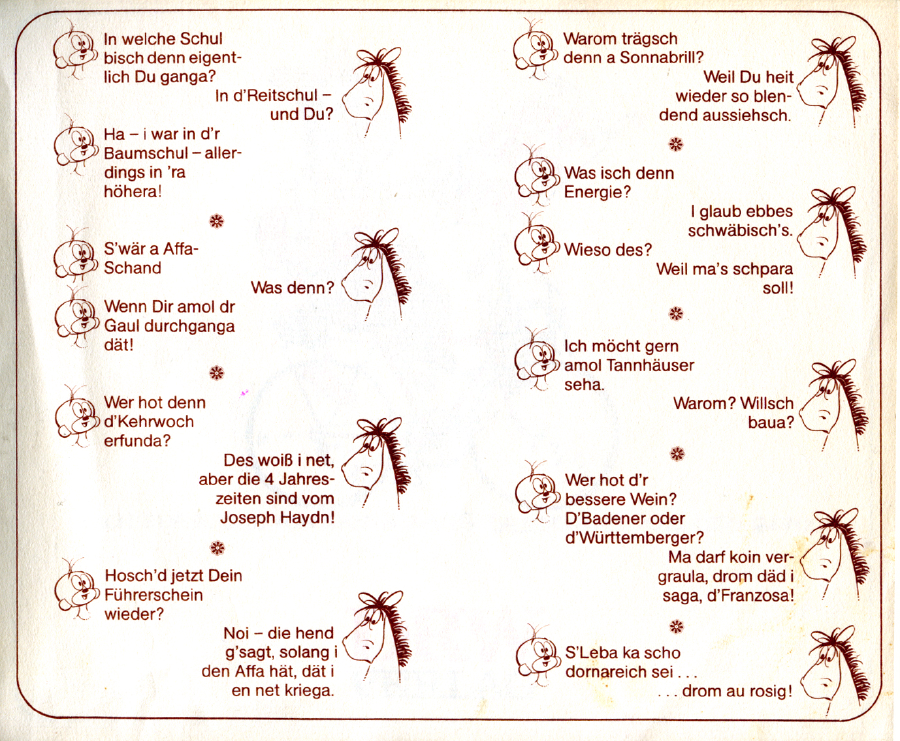 In welche Schul
bisch denn eigent-
lich Du ganga?
In d'Reitschul –
und Du?
Ha – i war in d'r
Baumschul – aller-
dings in 'ra
höhera!
S'wär a Affa-
Schand
Was denn?
Wenn Dir amol dr
Gaul durchganga
dät!
Wer hot denn
d'Kehrwoch
erfunda?
Des woiß i net,
aber die 4 Jahres-
zeiten sind vom
Joseph Haydn!
Hosch'd jetzt Dein
Führerschein
wieder?
Noi – die hend
g'sagt, solang i
den Affa hät, dät i
en net kriega.
Warom trägsch
denn a Sonnabrill?
Weil Du heit
wieder so blen-
dend aussiehsch.
Was isch denn
Energie?
I glaub ebbes
schwäbisch's.
Wieso des?
Weil ma's schpara
soll!
Ich möcht gern
amol Tannhäuser
seha.
Warom? Willsch
baua?
Wer hot d'r
bessere Wein?
D'Badener oder
d'Württemberger?
Ma darf koin ver-
graula, drom däd i
saga, d'Franzosa!
S'Leba ka scho
dornareich sei . . .
. . . drom au rosig!